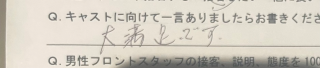 Q. キャストに向けて一言ありましたらお書きくださ
大満足です。
Q. 男性フロントスタッフの接客、説明、態度を100